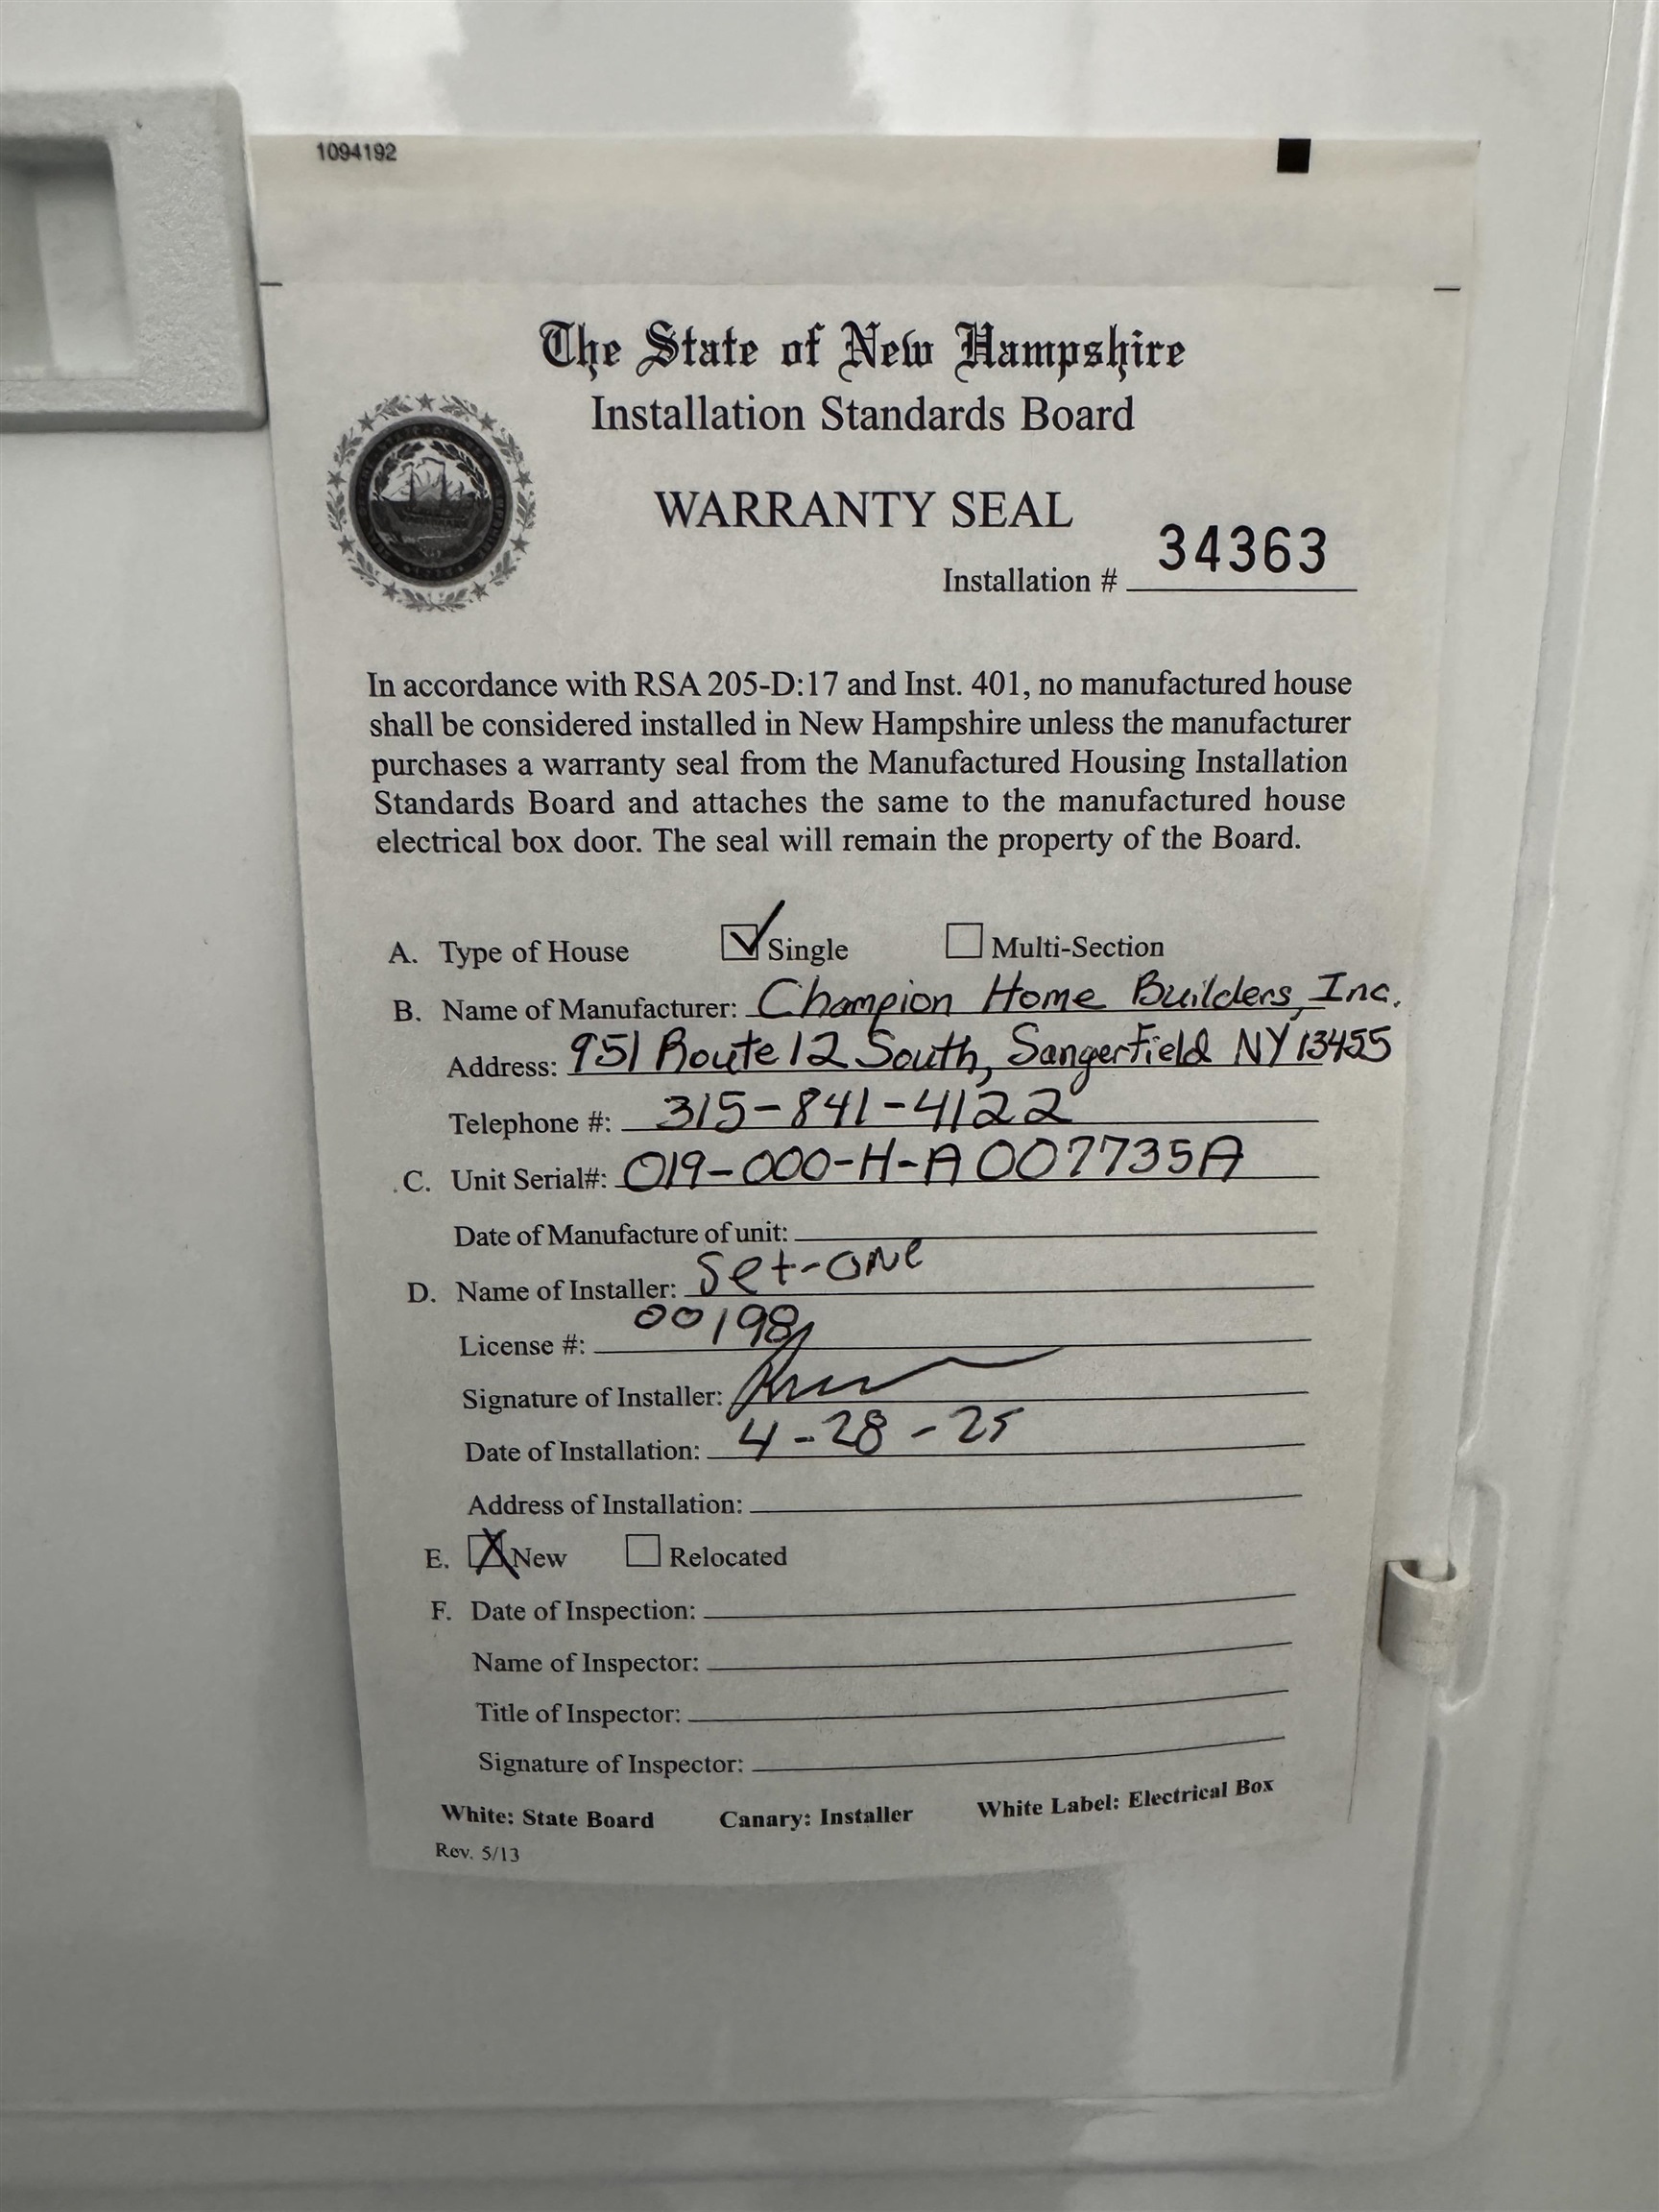 1094192
The State of New Hampshire
Installation Standards Board
WARRANTY SEAL
Installation # 34363
In accordance with RSA 205-D:17 and Inst. 401, no manufactured house
shall be considered installed in New Hampshire unless the manufacturer
purchases a warranty seal from the Manufactured Housing Installation
Standards Board and attaches the same to the manufactured house
electrical box door. The seal will remain the property of the Board.
A. Type of House Single Multi-Section
B. Name of Manufacturer: Champion Home Builders, Inc.
Address: 951 Route 12 South, Sangerfield NY 13455
Telephone #: 315-841-4122
C. Unit Serial#: 019-000-H-A007735A
Date of Manufacture of unit:
D. Name of Installer: Set-one
License #: 00198
Signature of Installer:
Date of Installation: 4-28-25
Address of Installation:
E. New Relocated
F. Date of Inspection:
Name of Inspector:
Title of Inspector:
Signature of Inspector:
White: State Board Canary: Installer White Label: Electrical Box
Rev. 5/13